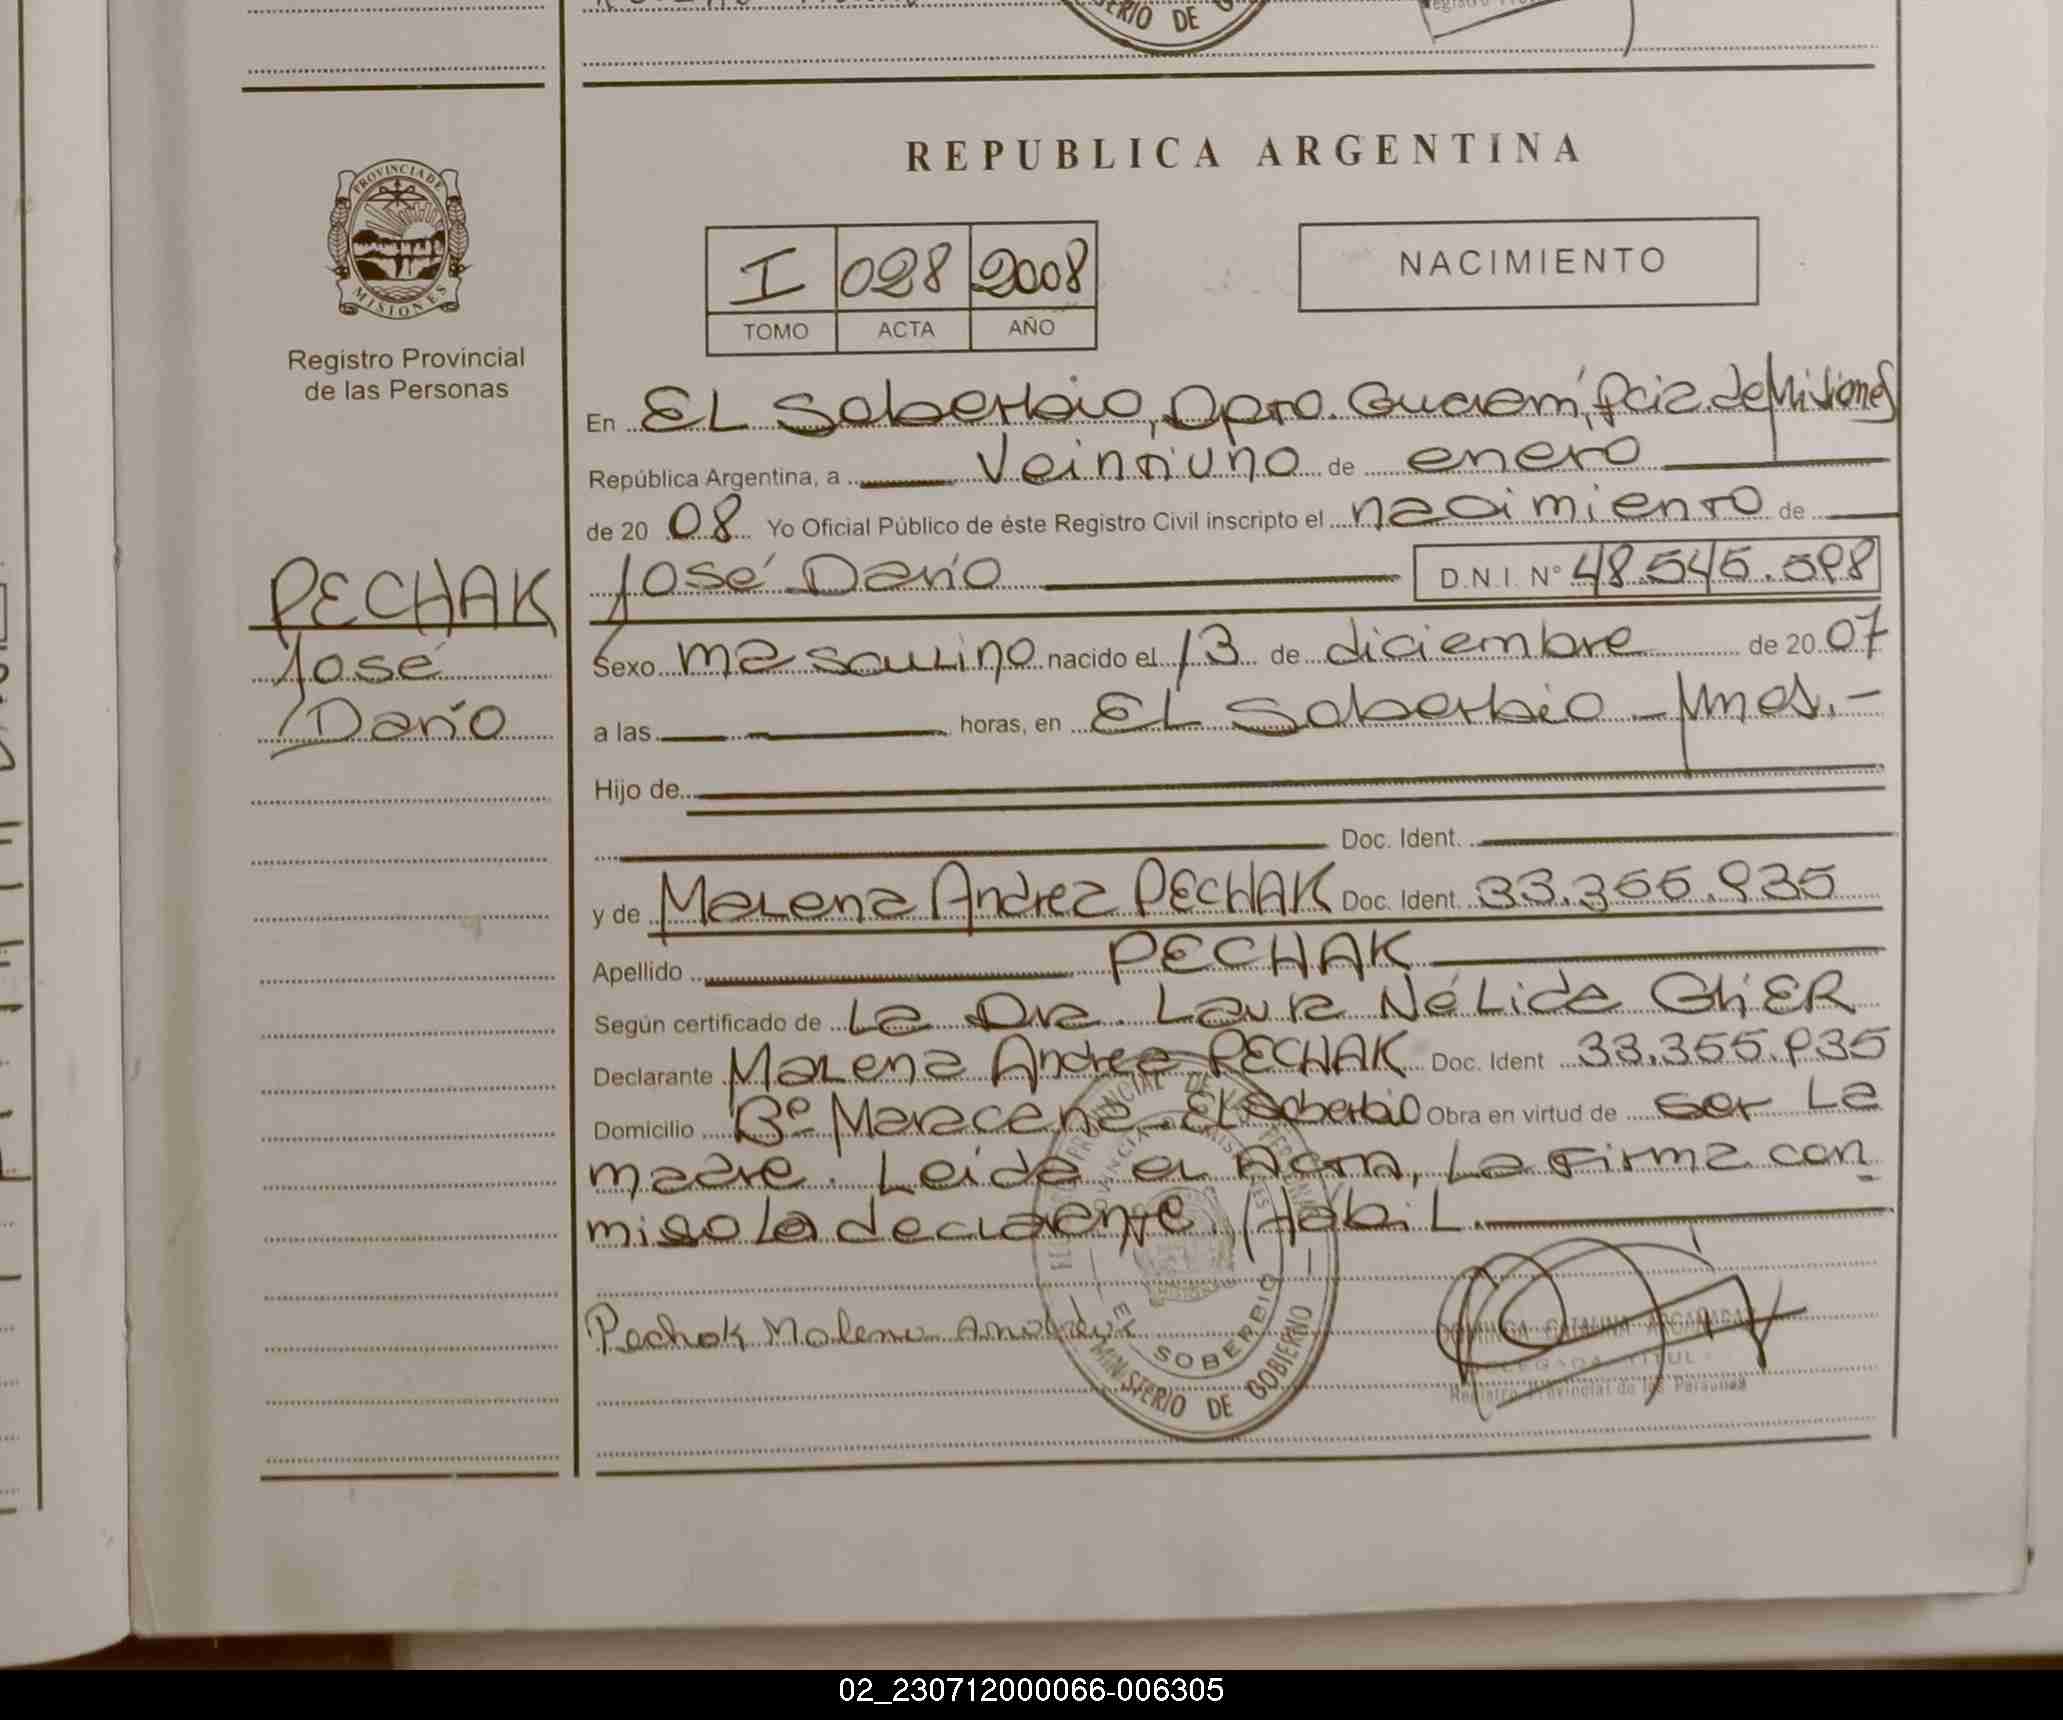 MINISTERIO DE
REPUBLICA ARGENTINA
PROVINCIA DE
MISIONES
Registro Provincial
de las Personas
I 028 2008
TOMO ACTA AÑO
NACIMIENTO
En EL Soberbio, Dpto. Guaraní, Pcia. de Misiones
República Argentina, a veintiuno de enero
de 2008 Yo Oficial Público de éste Registro Civil inscripto el nacimiento de
José Darío D.N.I. Nº 48.545.598
PECHAK
José
Darío
Sexo masculino nacido el 13 de diciembre de 2007
a las horas, en EL Soberbio - Mnes.-
Hijo de
Doc. Ident.
y de Malena Andrea PECHAK Doc. Ident. 33.355.935
Apellido PECHAK
Según certificado de La Dra. Laura NéLida GhiER
Declarante Malena Andrea PECHAK Doc. Ident 33.355.935
Domicilio Bº Maracaná - El Soberbio Obra en virtud de ser La
madre. Leida el Acta, La firma con
migo la declarente. Hábil.
Pechak Malena Andrea
EL SOBERBIO
MINISTERIO DE GOBIERNO
DOMINGA CATALINA
DELEGADA TITUL
Registro Provincial de las Personas
02_230712000066-006305